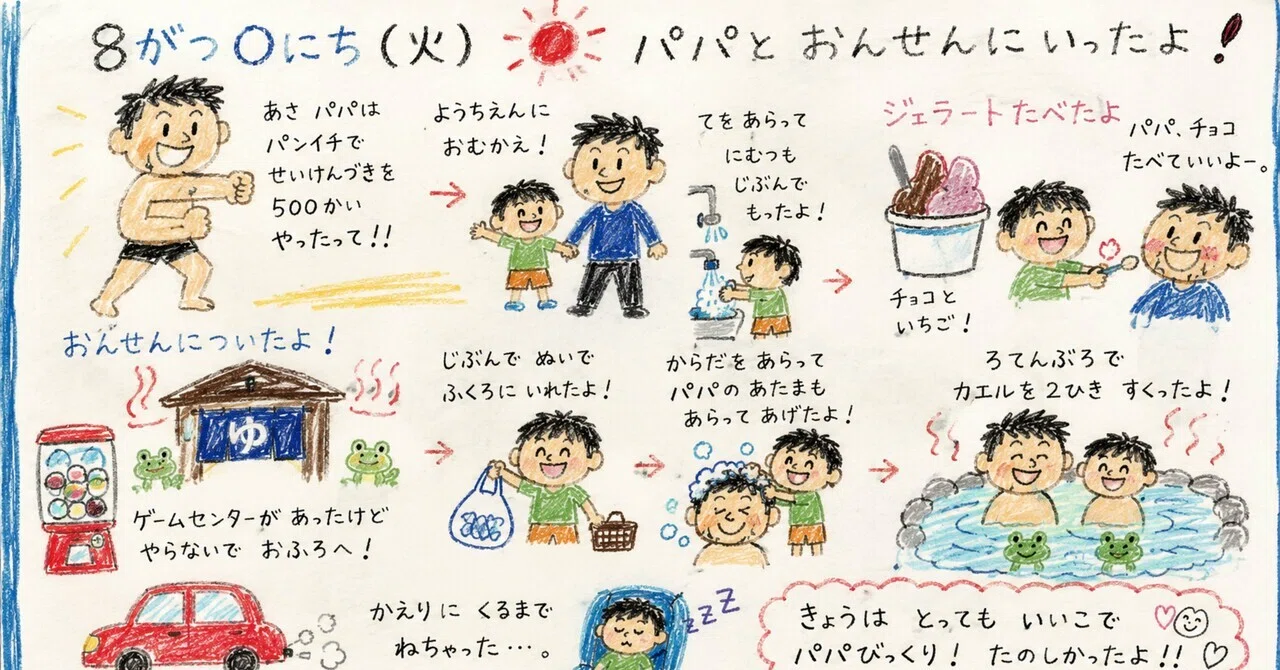 8がつ〇にち(火)
パパと おんせんに いったよ!
あさ パパは
パンイチで
せいけんづきを
500かい
やったって!!
ようちえんに
おむかえ!
てを あらって
にもつも
じぶんで
もったよ!
ジェラート たべたよ
パパ、チョコ
たべていいよー。
チョコと
いちご!
おんせんに ついたよ!
ゆ
ゲームセンターが あったけど
やらないで おふろへ!
じぶんで ぬいで
ふくろに いれたよ!
からだを あらって
パパの あたまも
あらって あげたよ!
ろてんぶろで
カエルを 2ひき すくったよ!
かえりに くるまで
ねちゃった・・・。
zzZ
きょうは とっても いいこで
パパびっくり! たのしかったよ!!